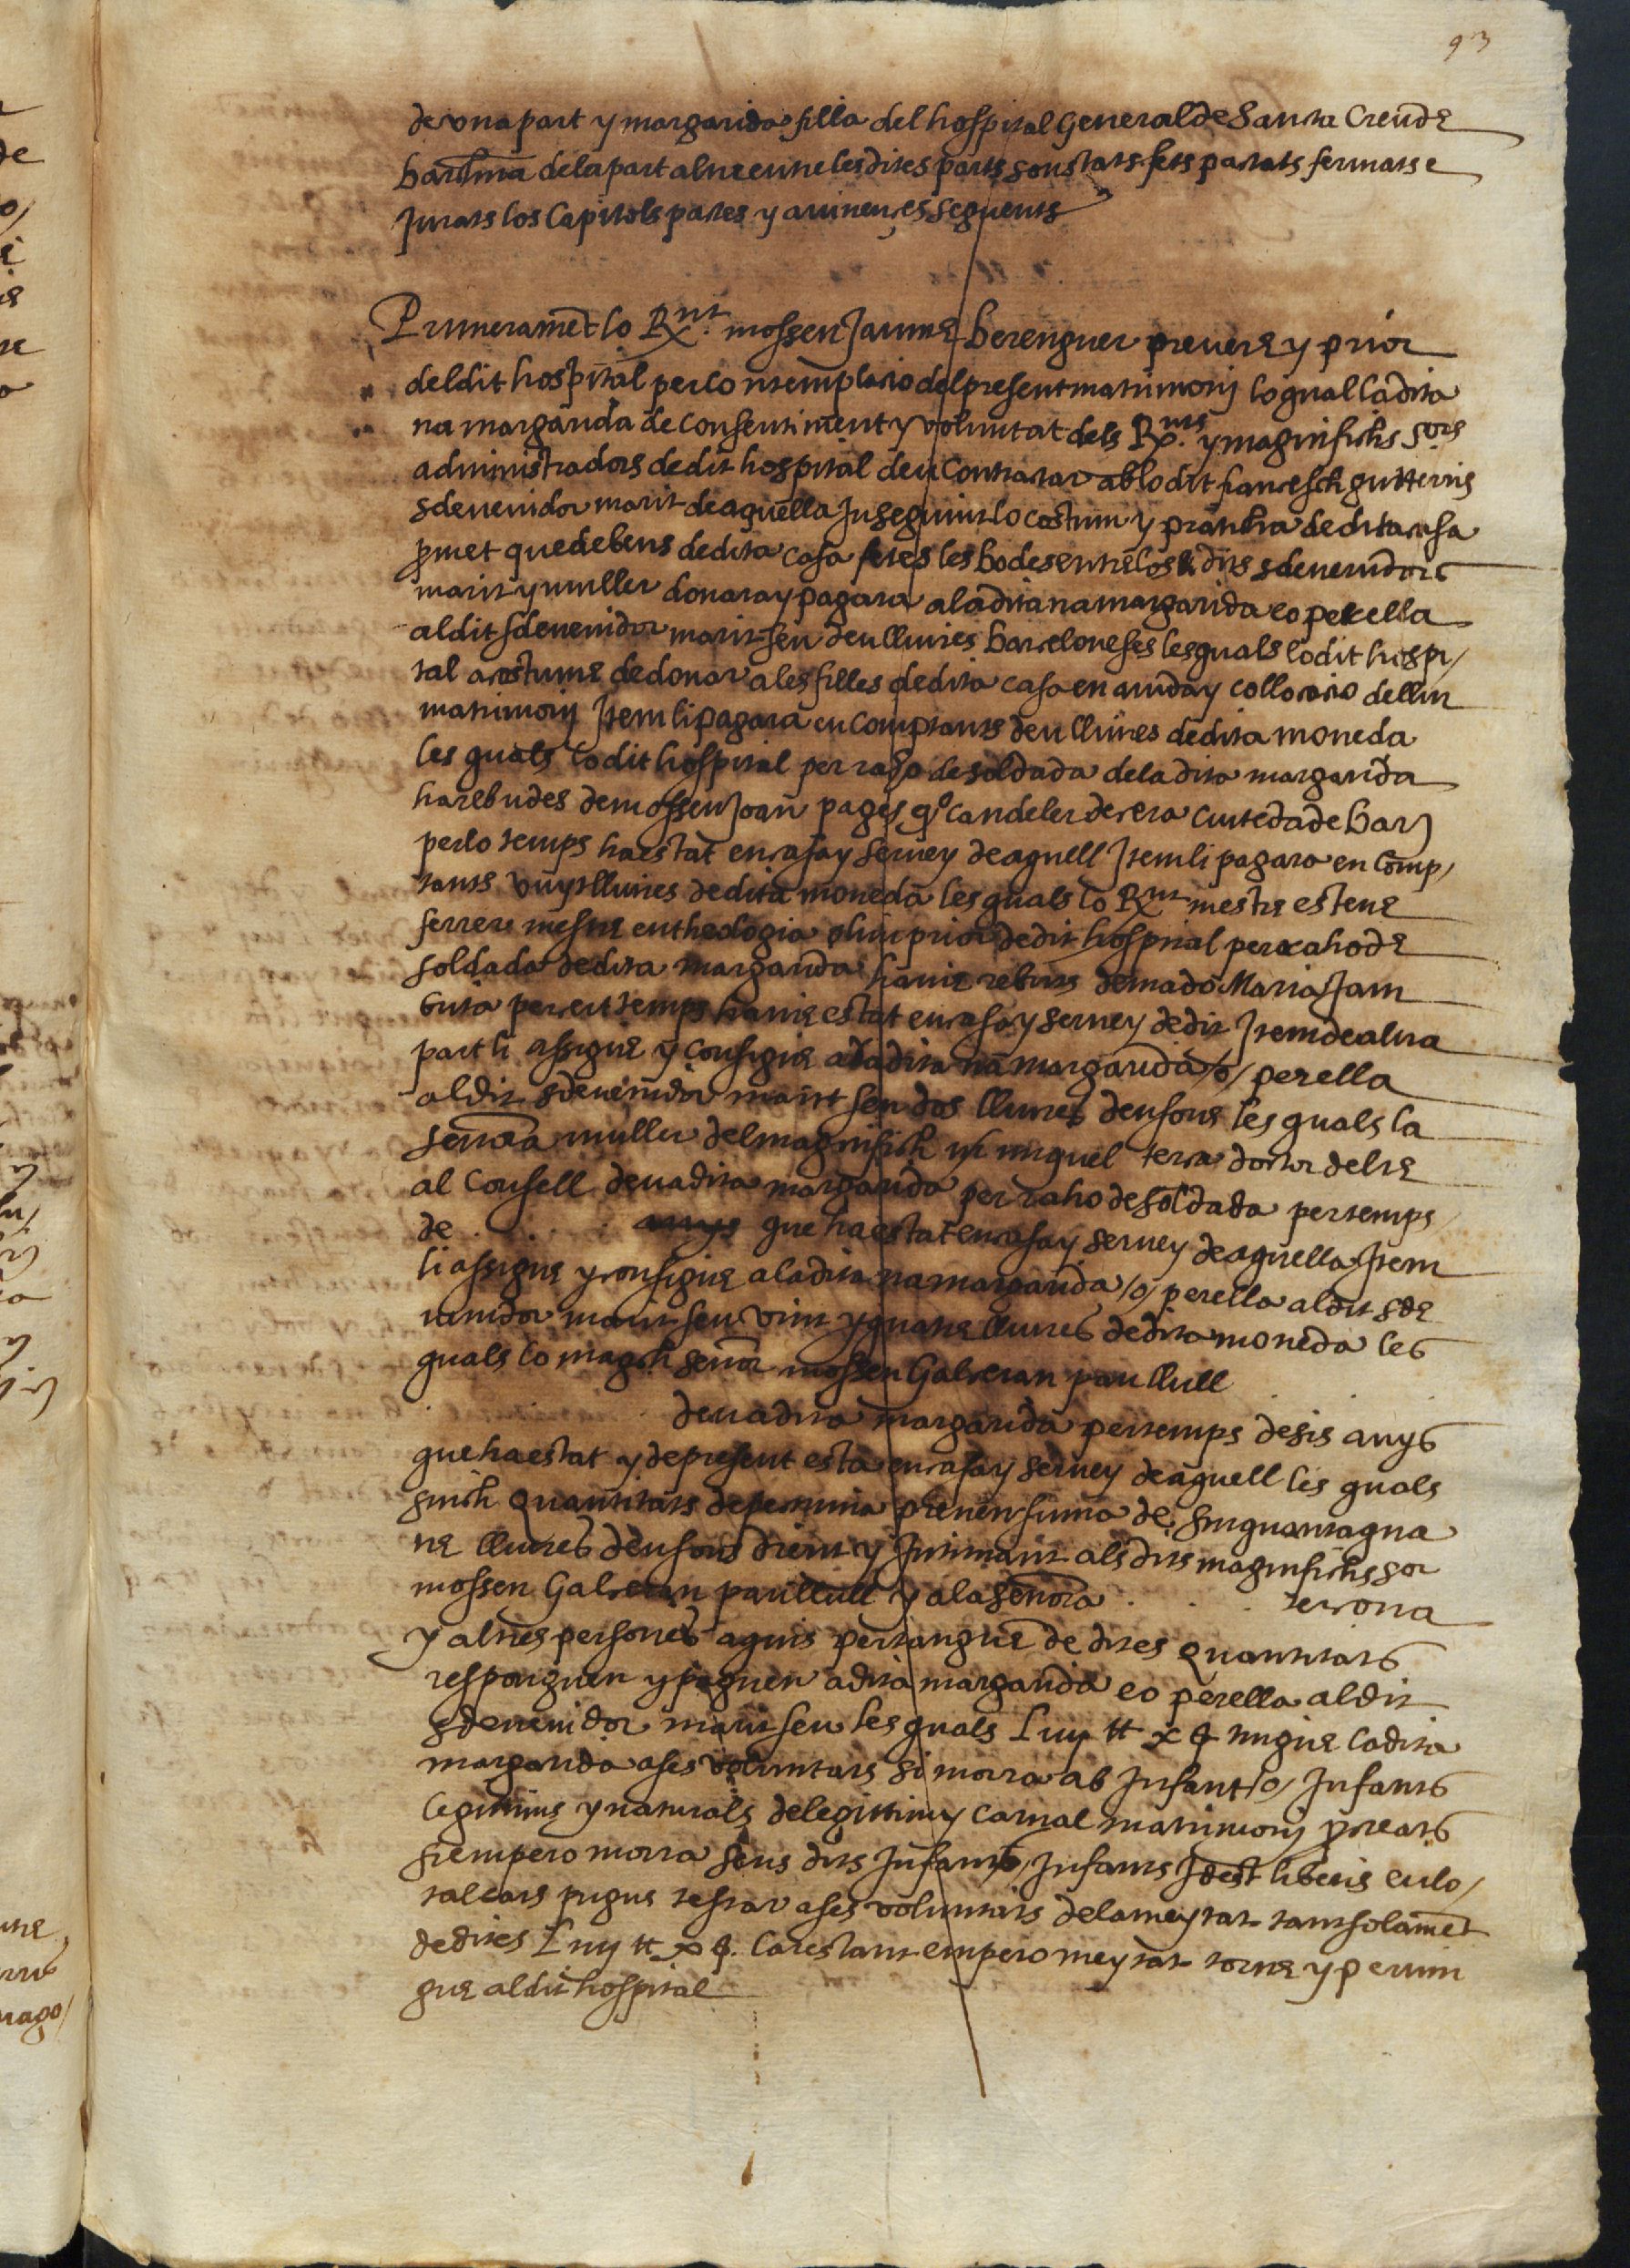 93
de una part y margarida filla del hospital General de Santa Creu de
barchna dela part altre entre les dites parts son stats fets pactats fermats e
Jurats los Capitols pactes y avinençes seguents
Primerament lo Rnt mossen Jaume berenguer prevere y prior
del dit hospital per contemplacio del present matrimonj lo qual la dita
na margarida de consentiment y voluntat dels Rnts y magnifichs Sors
administradors de dit hospital deu Contractar ab lo dit francesch gutterris
sdevenidor marit de aquella Inseguint lo costum y practica de dita casa
promet que de bens de dita casa fetes les bodes entre los dits sdevenidors
marit y muller donara y pagara a la dita na margarida eo per ella
al dit sdevenidor marit seu deu lliures barceloneses les quals lo dit hospi/
tal acostuma de donar a les filles de dita casa en aiuda y collocacio de llur
matrimonj Item li pagara en comptants deu lliures de dita moneda
les quals lo dit hospital per raho de soldada de la dita margarida
ha rebudes de mossen Joan pages qº candeler de cera Ciuteda de bar
per lo temps ha estat en casa y servey de aquell Item li pagara en Comp/
tants vuyt lliures de dita moneda les quals lo Rnt mestre esteve
ferrer mestre en theologia olim prior de dit hospital per raho de
soldada de dita margarida havie rebuts de mado Maria Jam
per cert temps havie estat en casa y servey de dit Item de altra
part li assigne y consigne a la dita na margarida /o/ per ella
al dit sdevenidor marit seu dos lliures deu sous les quals la
senora muller del magnifich mº miquel terça doctor del re
al Consell deu a dita margarida per raho de soldada per temps
de . . . . anys que ha estat en casa y servey de aquella Item
li assigne y consigne a la dita na margarida /o/ per ella al dit sde
venidor marit seu vint y quatre lliures de dita moneda les
quals lo magch senor mossen Galceran pau llull
deu a dita margarida per temps de sis anys
que ha estat y de present esta en casa y servey de aquell les quals
sinch quantitats de pecunia prenen suma de sinquanta qua
tre lliures deu sous dient y Intimant als dits magnifichs sor
mossen Galceran pau llull y a la senora . . . terrona
y altres persones a quis pertangue de dites quantitats
responguen y paguen a dita margarida eo per ella al dit
sdevenidor marit seu les quals Liiij ll x s tingue la dita
margarida a ses voluntats si morra ab Infant /o/ Infants
legitims y naturals de legittim y carnal matrimonj procreats
si empero morra sens dits Infants Infants Idest liberis en lo/
tal cars pugue testar a ses voluntats de la meytat tantsolament
de dites Liiij ll x s. La restant empero meytat torne y pervin
gue al dit hospital